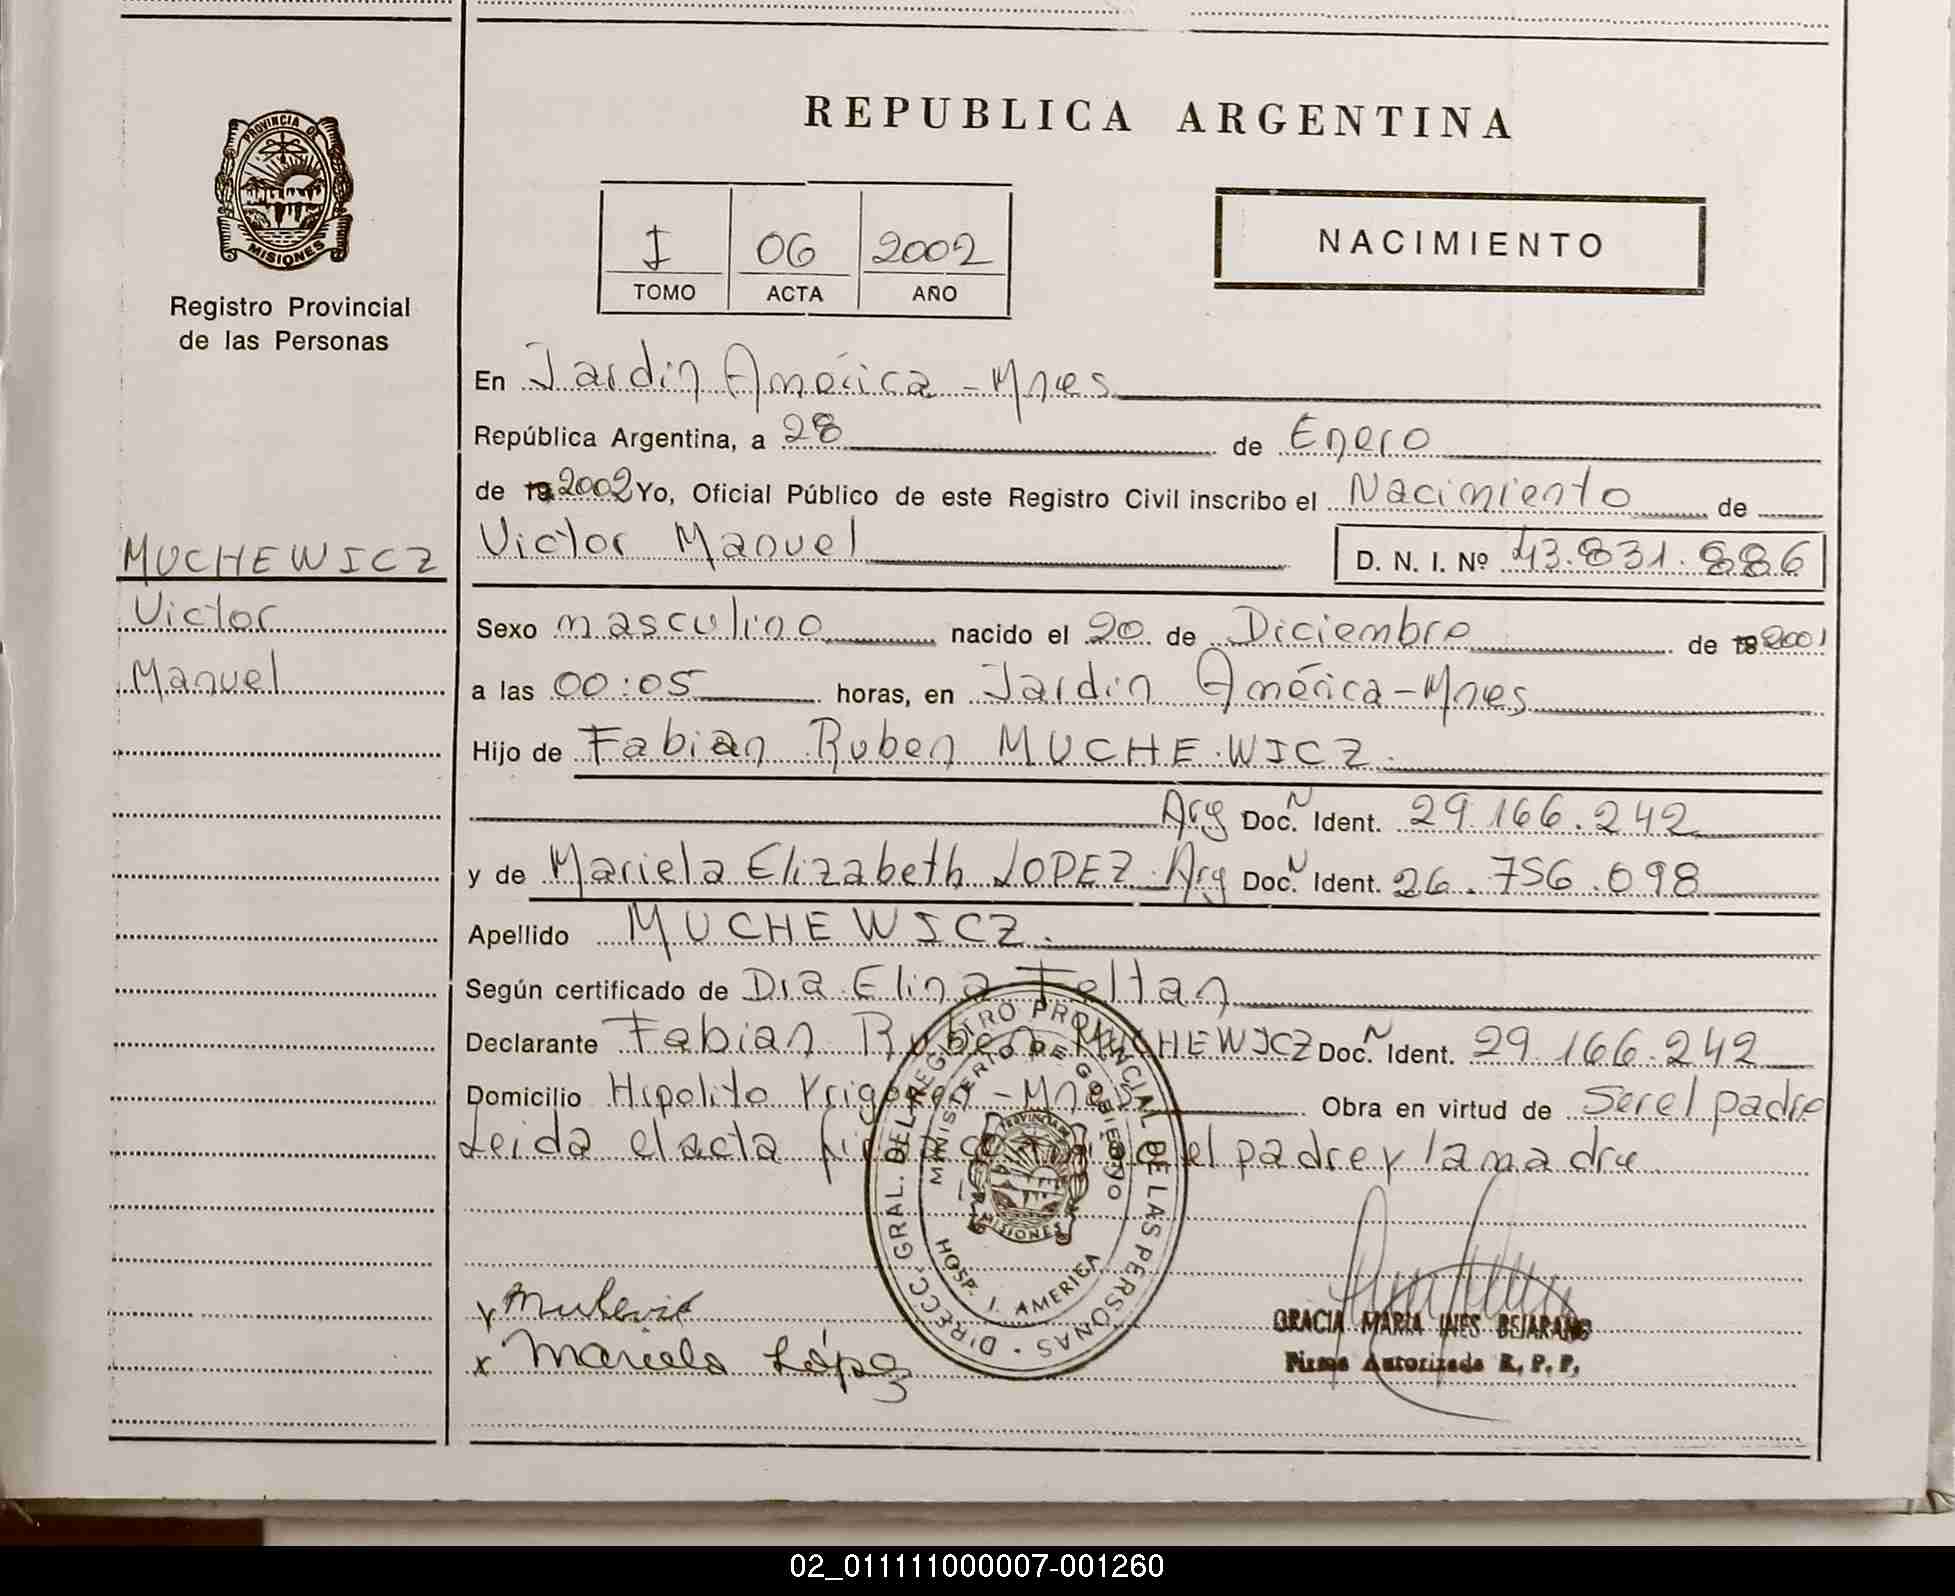 REPUBLICA ARGENTINA
PROVINCIA DE MISIONES
Registro Provincial
de las Personas
I 06 2002
TOMO ACTA AÑO
NACIMIENTO
En Jardín América - Mnes
República Argentina, a 28 de Enero
de 19 2002 Yo, Oficial Público de este Registro Civil inscribo el Nacimiento de
MUCHEWICZ
Victor
Manuel
Victor Manuel D. N. I. Nº 43.831.886
Sexo masculino nacido el 20 de Diciembre de 19 2001
a las 00:05 horas, en Jardín América - Mnes
Hijo de Fabian Ruben MUCHEWICZ.
Arg Doc. N Ident. 29.166.242
y de Mariela Elizabeth LOPEZ Arg Doc. N Ident. 26.756.098
Apellido MUCHEWICZ.
Según certificado de Dra Elina Feltan
Declarante Fabian Ruben MUCHEWICZ Doc. N Ident. 29.166.242
Domicilio Hipolito Yrigoyen - Mnes Obra en virtud de Ser el padre
Leida el acta el padre y la madre
DIRECC. GRAL. DEL REGISTRO PROVINCIAL DE LAS PERSONAS
MINISTERIO DE GOBIERNO
PROVINCIA DE MISIONES
HOSP. J. AMERICA
x
x Mariela López
GRACIA MARIA INES BEJARANO
Firma Autorizada R. P. P.
02_011111000007-001260